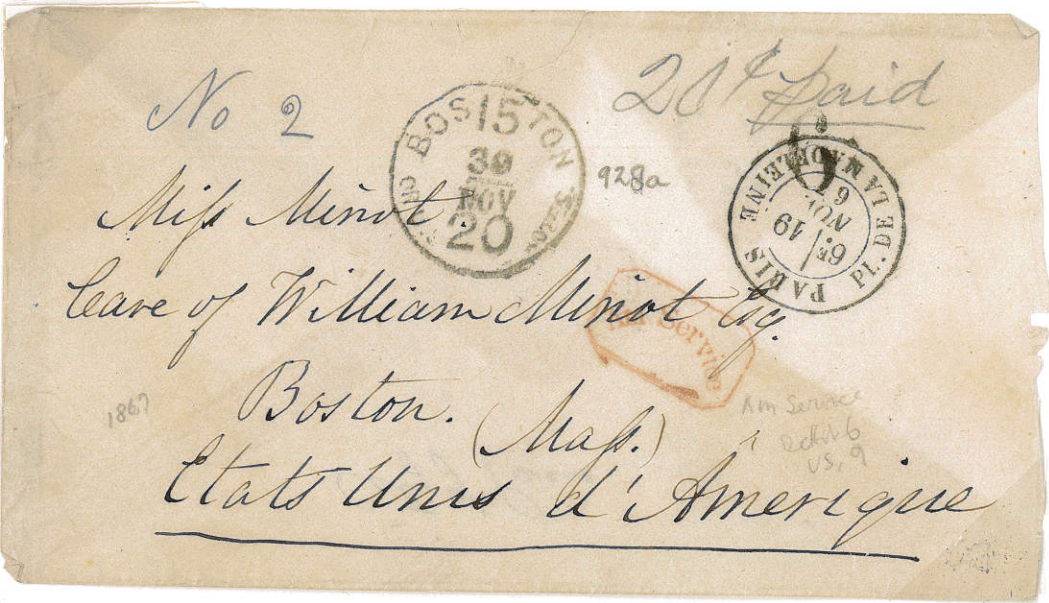 No 2
20¢ paid
BOSTON
15
30
NOV
20
928a
PARIS PL. DE LA MADELEINE
6E
19
NOV.
6
Miss Minot.
Care of William Minot Esq.
Am Service
Boston.
1867
(Mass.)
Am Service
US, 9
Etats Unis d'Amerique